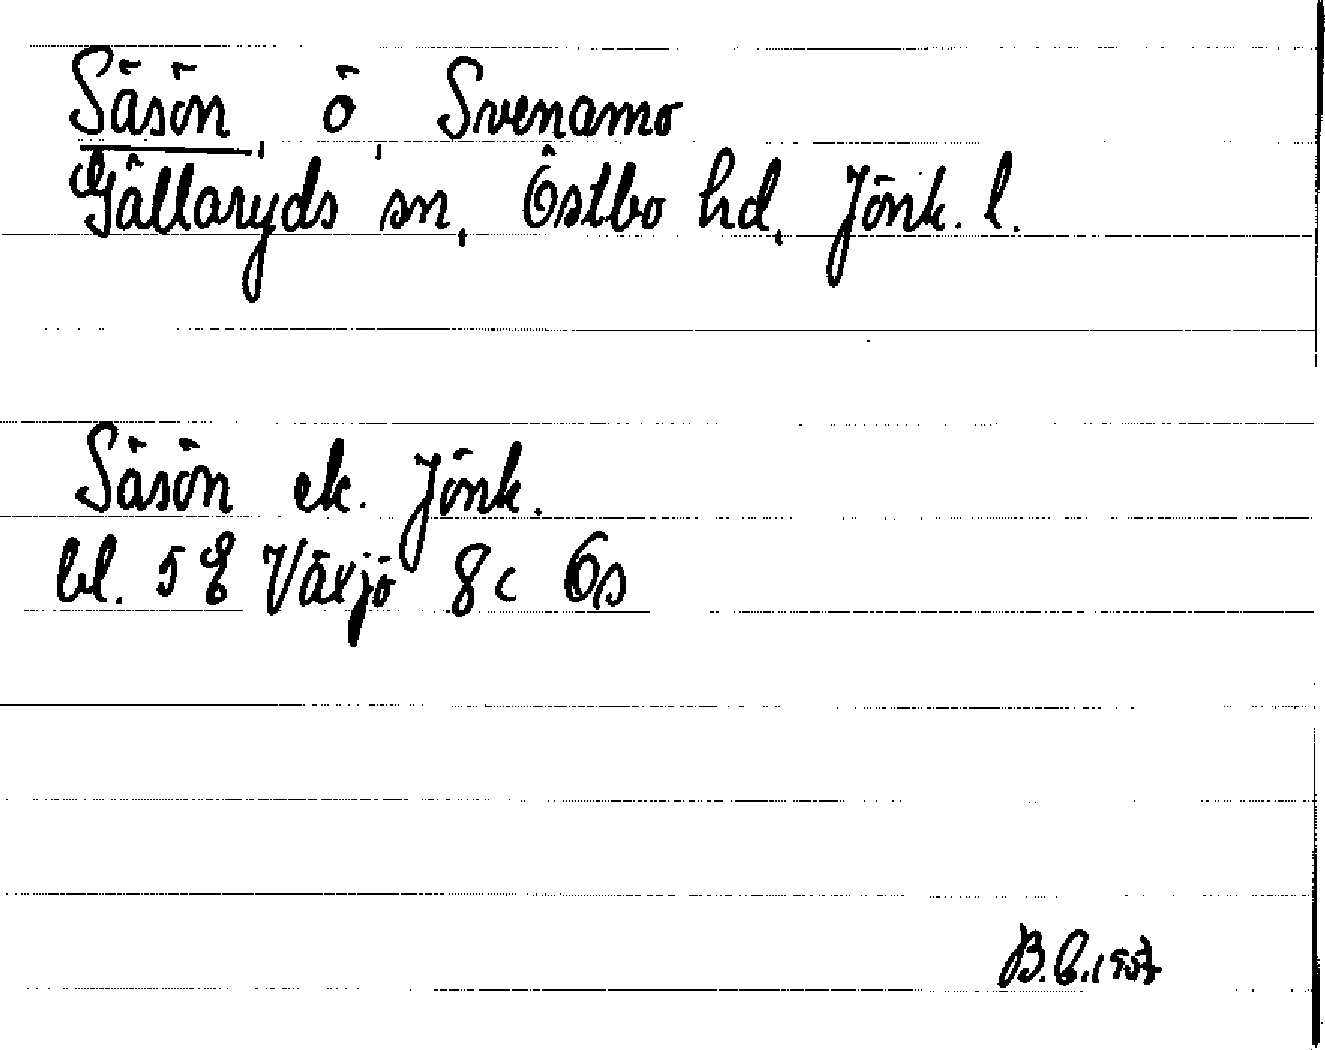 Säsön, ö, Svenamo
Gällaryds sn, Östbo hd, Jönk. l.
Säsön ek. Jönk.
bl. 58 Växjö 8c Ös
B.E. 1957